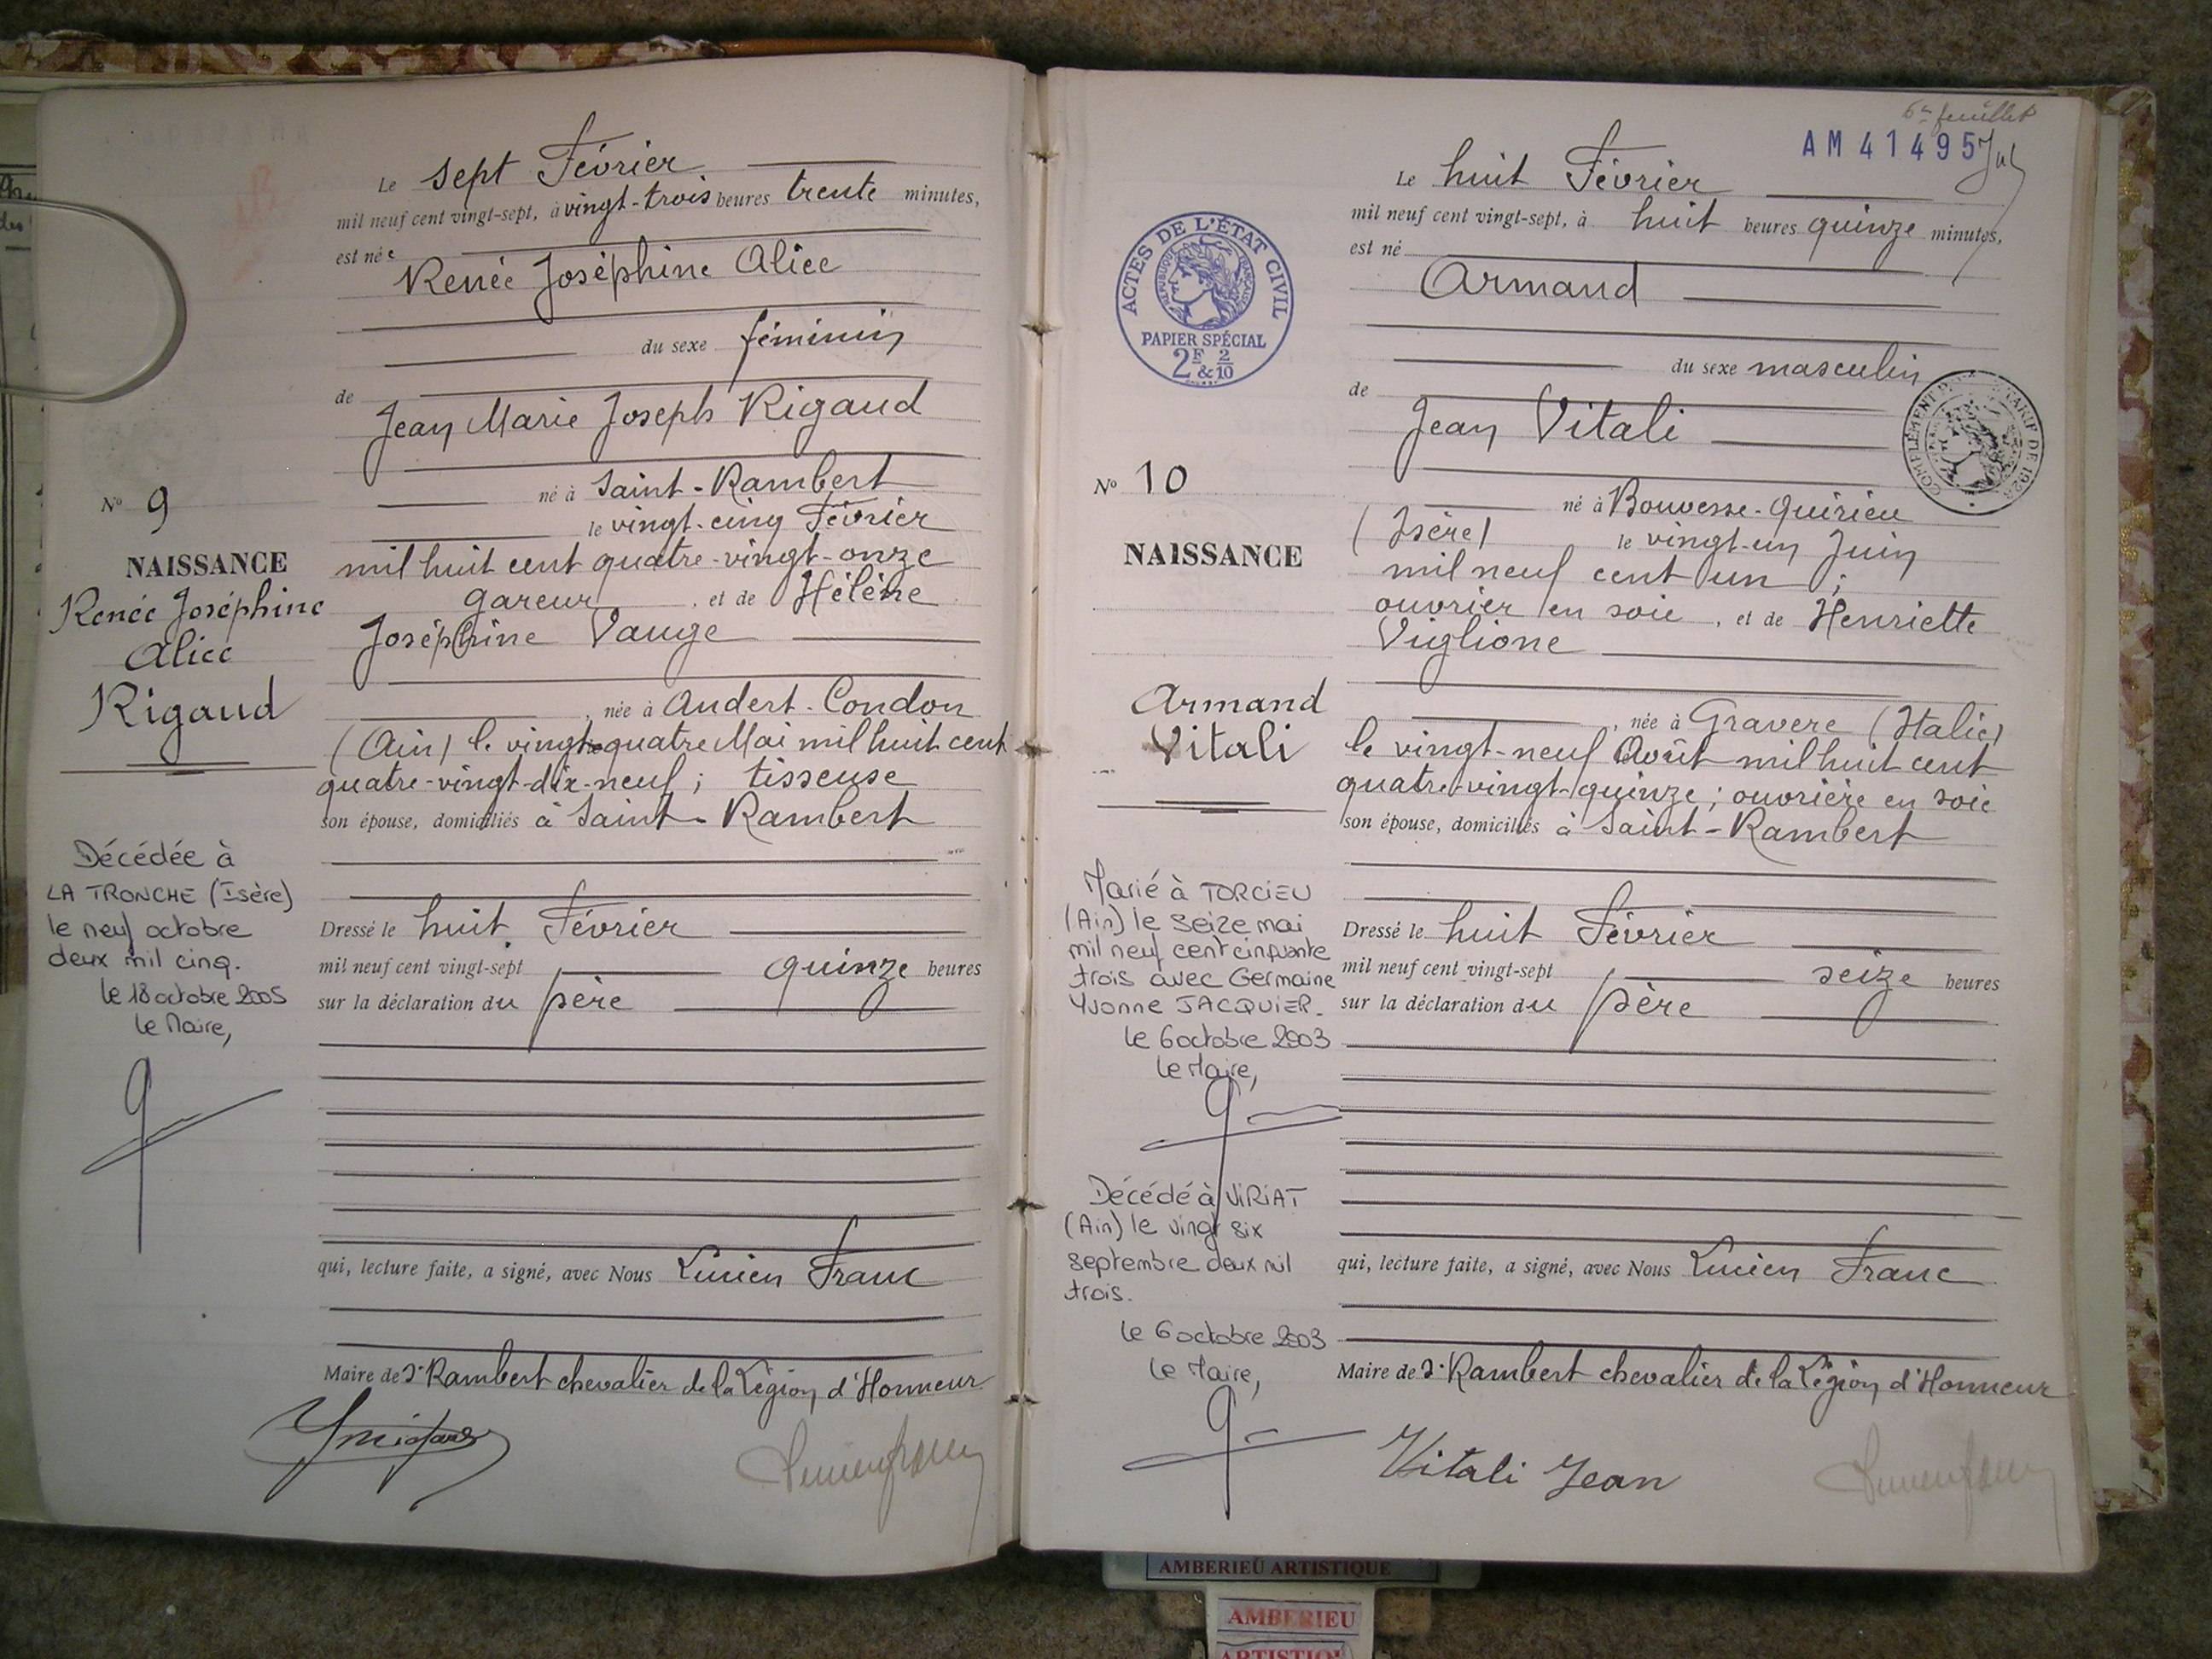 Le sept Février
mil neuf cent vingt-sept, à vingt-trois heures trente minutes,
est née
Renée Joséphine Alice
du sexe féminin
de
Jean Marie Joseph Rigaud
né à Saint-Rambert
le vingt-cinq Février
mil huit cent quatre-vingt-onze
gareur, et de Hélène
Joséphine Vauge
, née à Andert-Condon
(Ain) le vingt-quatre Mai mil huit cent
quatre-vingt-dix-neuf ; tisseuse
son épouse, domiciliés à Saint-Rambert
Dressé le huit Février
mil neuf cent vingt-sept quinze heures
sur la déclaration du père
qui, lecture faite, a signé, avec Nous Lucien Franc
Maire de St Rambert chevalier de la Légion d'Honneur
No 9
NAISSANCE
Renée Joséphine
Alice
Rigaud
Décédée à
LA TRONCHE (Isère)
le neuf octobre
deux mil cinq.
le 18 octobre 2005
le Maire,
6e feuillet
AM 41495
Le huit Février
mil neuf cent vingt-sept, à huit heures quinze minutes,
est né
Armand
du sexe masculin
de
Jean Vitali
né à Bouvesse-Quirieu
(Isère) le vingt-un Juin
mil neuf cent un ;
ouvrier en soie, et de Henriette
Viglione
, née à Gravere (Italie)
le vingt-neuf Août mil huit cent
quatre-vingt-quinze ; ouvrière en soie
son épouse, domiciliés à Saint-Rambert
Dressé le huit Février
mil neuf cent vingt-sept seize heures
sur la déclaration du père
qui, lecture faite, a signé, avec Nous Lucien Franc
Maire de St Rambert chevalier de la Légion d'Honneur
Vitali Jean
ACTES DE L'ÉTAT CIVIL
RÉPUBLIQUE FRANÇAISE
PAPIER SPÉCIAL
2F & 2/10
No 10
NAISSANCE
Armand
Vitali
Marié à TORCIEU
(Ain) le seize mai
mil neuf cent cinquante
trois avec Germaine
Yvonne JACQUIER.
le 6 octobre 2003
le Maire,
Décédé à VIRIAT
(Ain) le vingt six
septembre deux mil
trois.
le 6 octobre 2003
le Maire,
AMBERIEU ARTISTIQUE
AMBERIEU